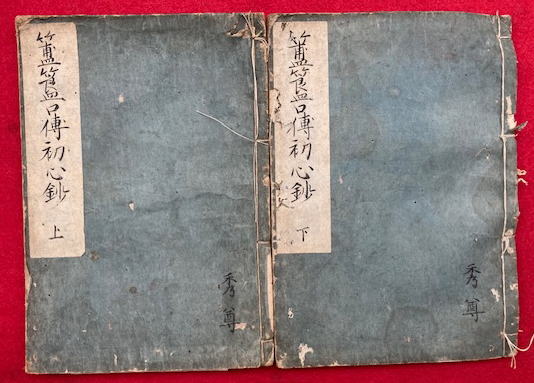 簠簋口傳初心鈔
上
秀尊
簠簋口傳初心鈔
下
秀尊